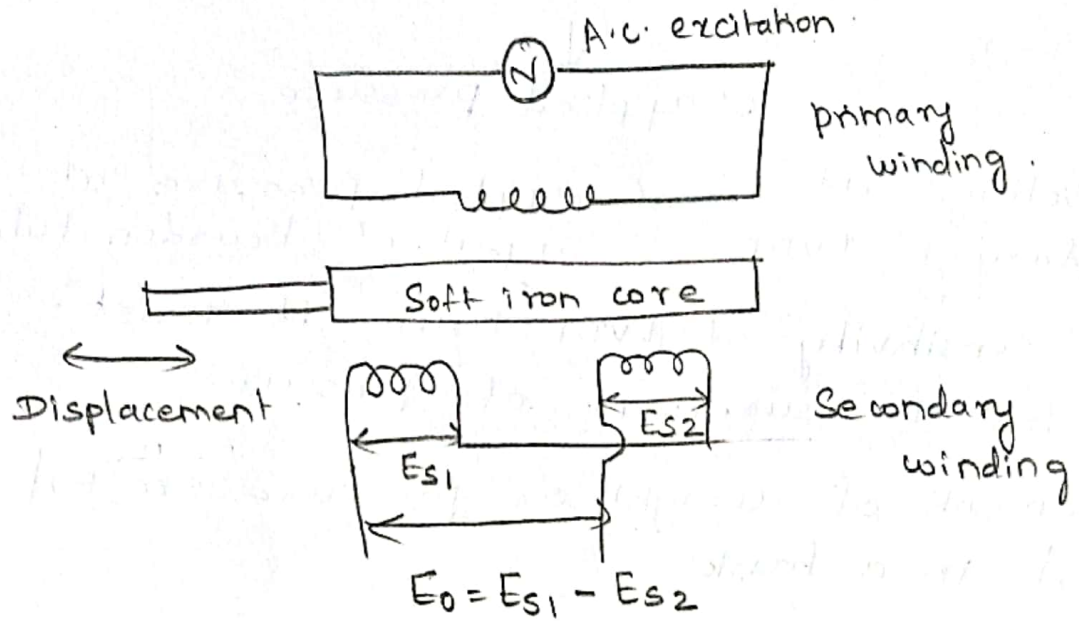 A.C. excitation
N
primary
winding.
Soft iron core
Displacement
ES1
ES2
Secondary
winding
E0 = ES1 - ES2